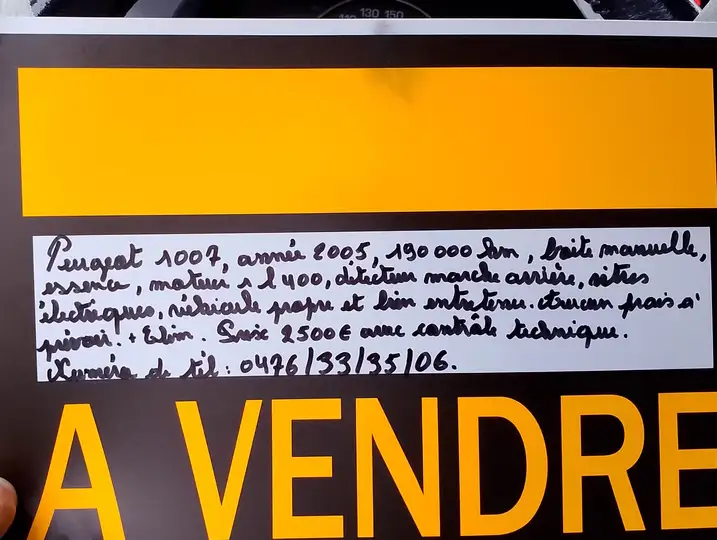 110 130 150
Peugeot 1007, année 2005, 190 000 km, boite manuelle,
essence, moteur 1 l 400, détecteur marche arrière, vitres
électriques, véhicule propre et bien entretenu. Aucun frais à
prévoir. + Clim. Prix 2500€ avec contrôle technique.
Numéro de tél : 0476/33/35/06.
A VENDRE